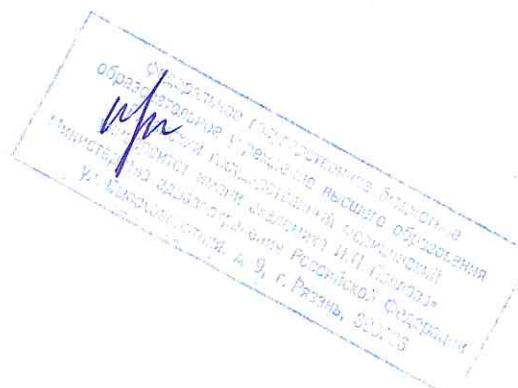 федеральное государственное бюджетное
образовательное учреждение высшего образования
государственный медицинский
университет имени академика И.П. Павлова»
Министерства здравоохранения Российской Федерации
ул. Высоковольтная, д. 9, г. Рязань,